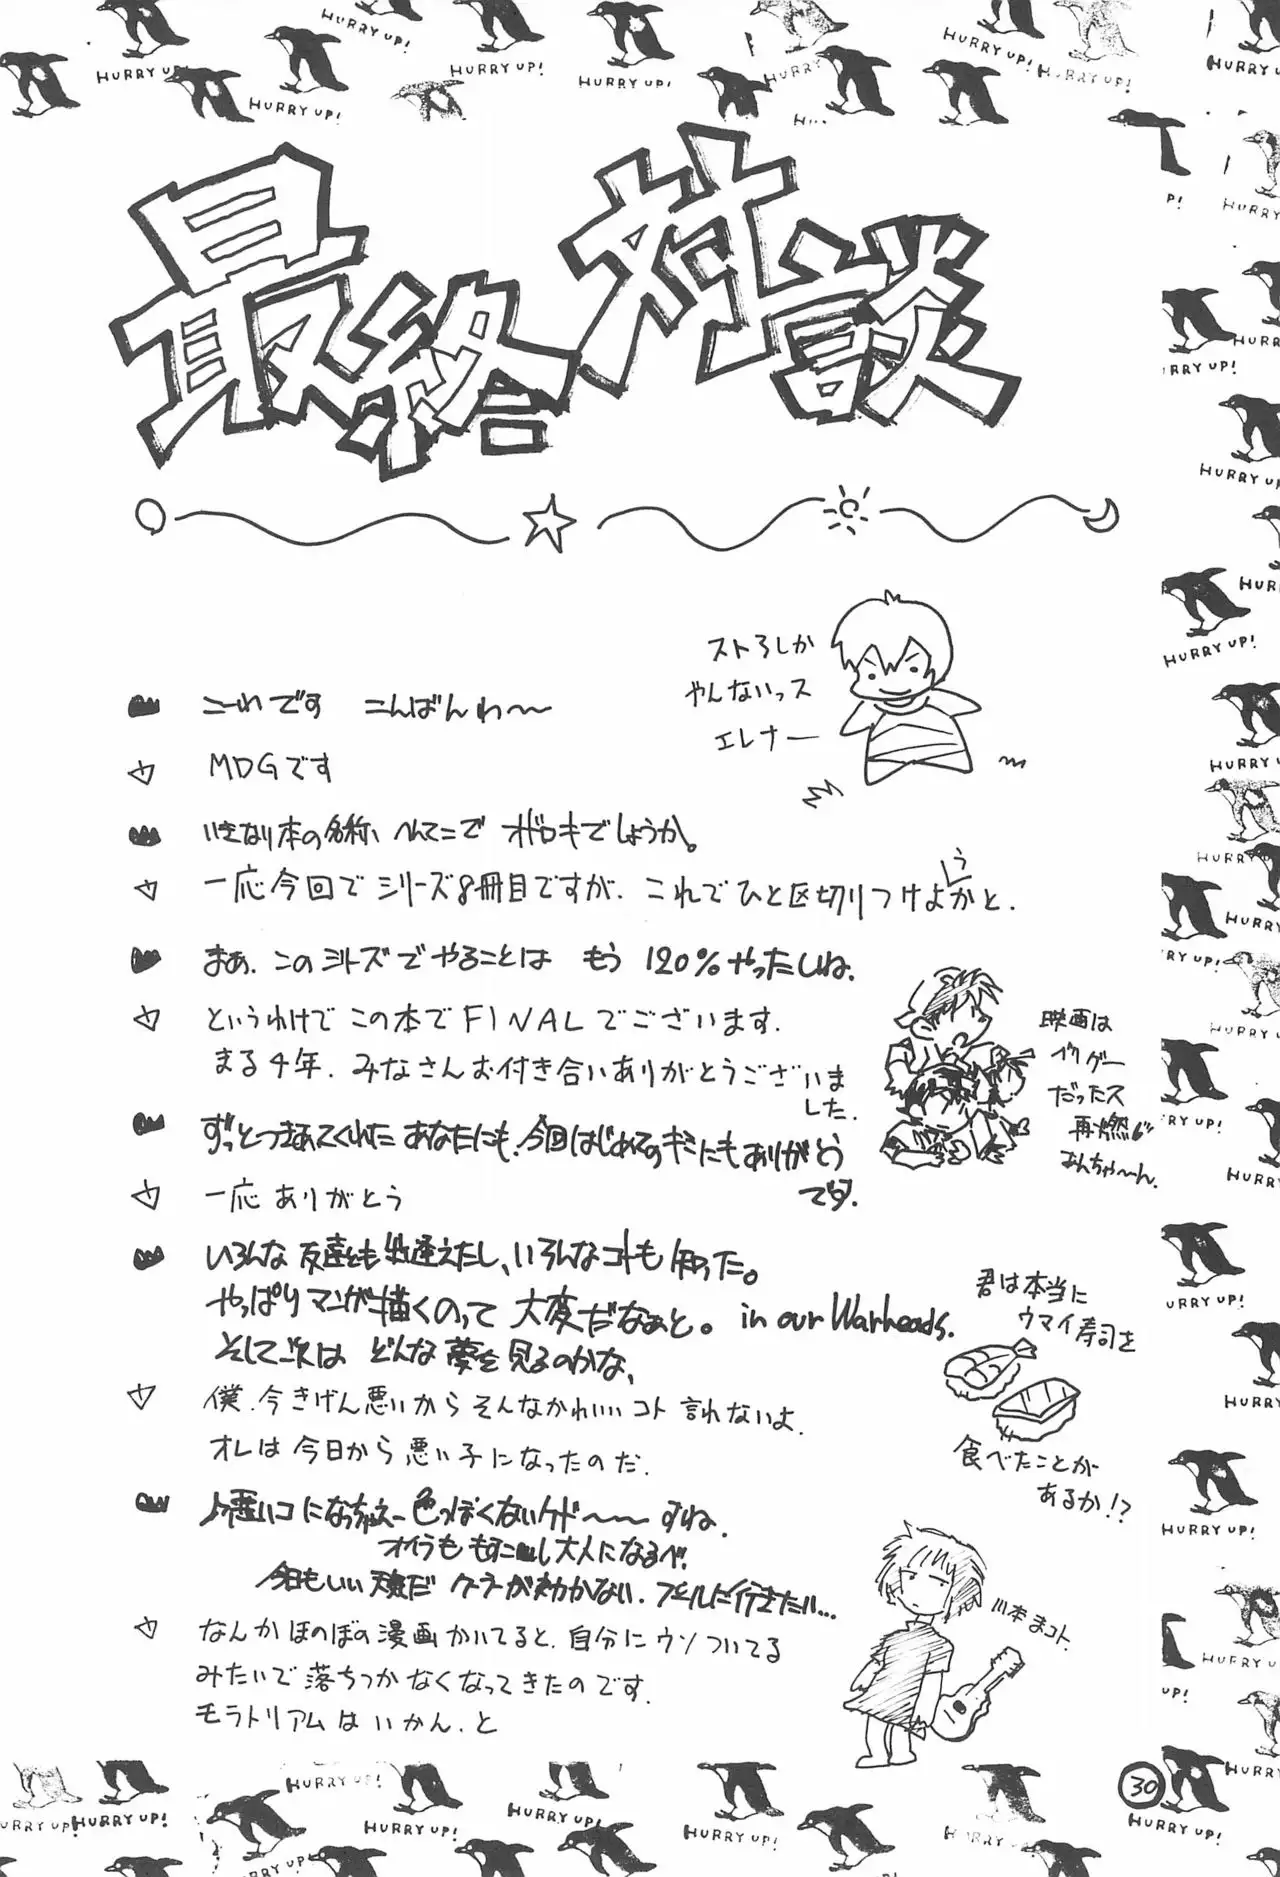 最終対談
ストろしか
やんないっス
エレナー
こーれです こんばんわ〜
MDGです
いきなり本の名称、へんてこで オドロキでしょうか。
一応今回でシリーズ8冊目ですが、これでひと区切りつけようかと.
まぁ、このシリーズでやることは もう 120%やったしね.
というわけで この本でFINALでございます.
まる4年、みなさんお付き合いありがとうございま
した.
映画は
だったス
再燃
ずっとつきあってくれた あなたにも、今回はじめてのキミにもありがとう
です.
一応 ありがとう
いろんな 友達とも 出逢えたし、いろんなコトも 知った。
やっぱりマンガ描くのって 大変だなぁと。 in our Warheads.
そして次は どんな夢を見るのかな、
君は本当に
ウマイ寿司を
食べたことが
あるか!?
僕、今きげん悪いから そんなかわいいコト 言れないよ.
オレは 今日から 悪い子に なったのだ.
悪いコになっちゃえー 色っぽくないケド〜〜 すね.
オイラも もすこし大人になるべ!
今日もいい天気だ クーラーが効かない.
川本まコト.
なんか ほのぼの漫画かいてると、自分にウソついてる
みたいで 落ちつかなくなってきたのです.
モラトリアムは いかん、と
30
HURRY UP!
HURRY UP!
HURRY UP!
HURRY UP!
HURRY UP!
HURRY UP!
HURRY UP!
HURRY UP!
HURRY UP!
HURRY UP!
HURRY UP!
HURRY UP!